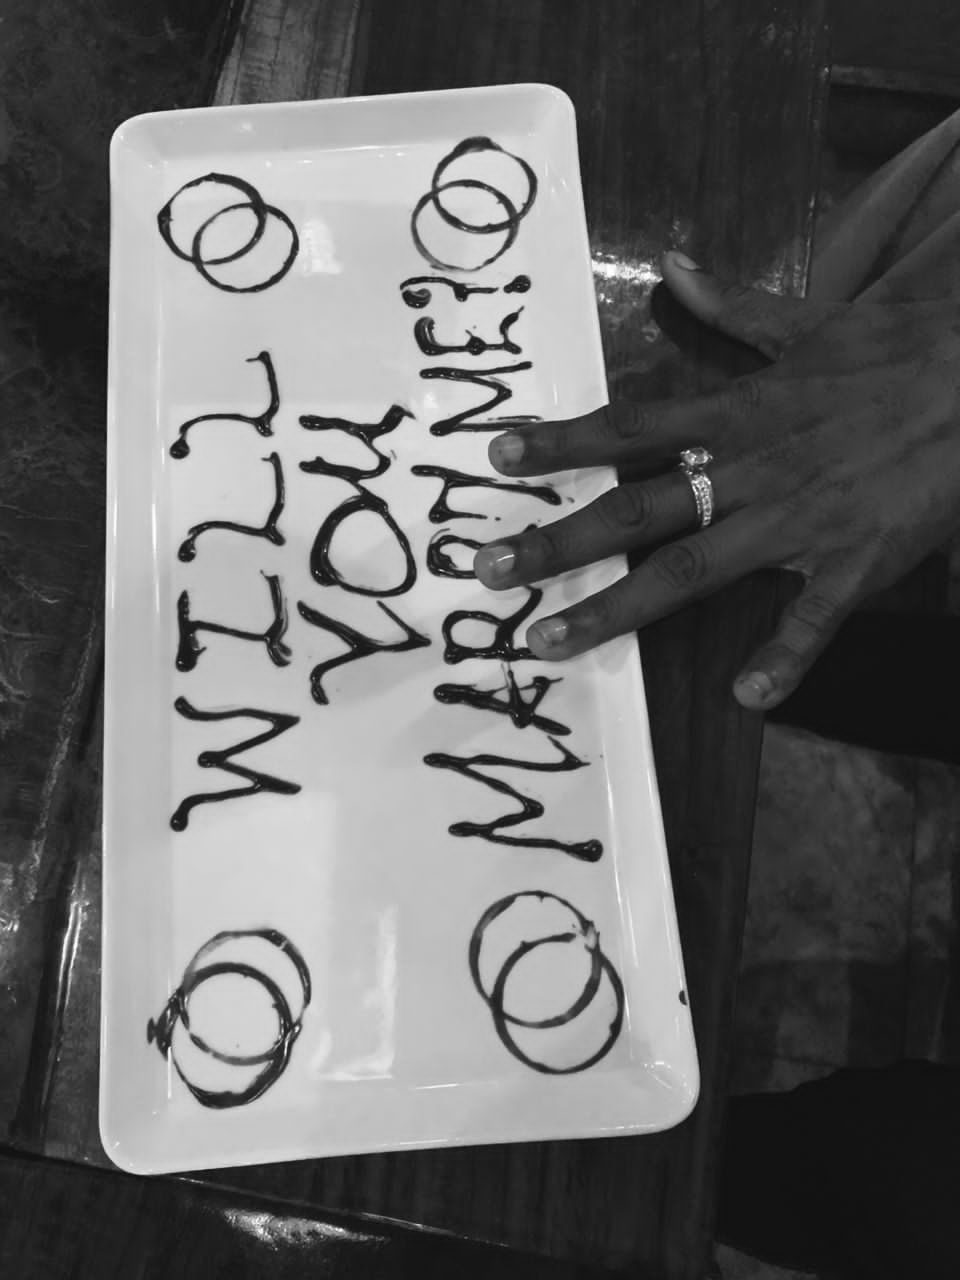 WILL
YOU
MARRY ME?